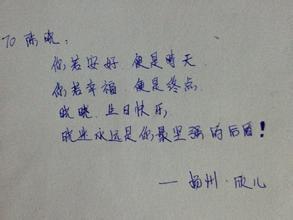 TO 陈晓:
你若安好 便是晴天
你若幸福 便是终点
晓晓 生日快乐
晓迷永远是你最坚强的后盾!
—扬州·欣儿